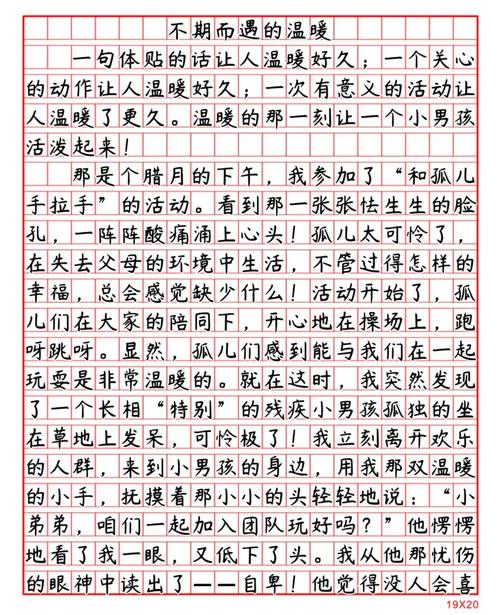 不期而遇的温暖
一句体贴的话让人温暖好久；一个关心
的动作让人温暖好久；一次有意义的活动让
人温暖了更久。温暖的那一刻让一个小男孩
活泼起来！
那是个腊月的下午，我参加了“和孤儿
手拉手”的活动。看到那一张张怯生生的脸
孔，一阵阵酸痛涌上心头！孤儿太可怜了，
在失去父母的环境中生活，不管过得怎样的
幸福，总会感觉缺少什么！活动开始了，孤
儿们在大家的陪同下，开心地在操场上，跑
呀跳呀。显然，孤儿们感到能与我们在一起
玩耍是非常温暖的。就在这时，我突然发现
了一个长相“特别”的残疾小男孩孤独的坐
在草地上发呆，可怜极了！我立刻离开欢乐
的人群，来到小男孩的身边，用我那双温暖
的小手，抚摸着那小小的头轻轻地说：“小
弟弟，咱们一起加入团队玩好吗？”他愣愣
地看了我一眼，又低下了头。我从他那忧伤
的眼神中读出了——自卑！他觉得没人会喜
19X20